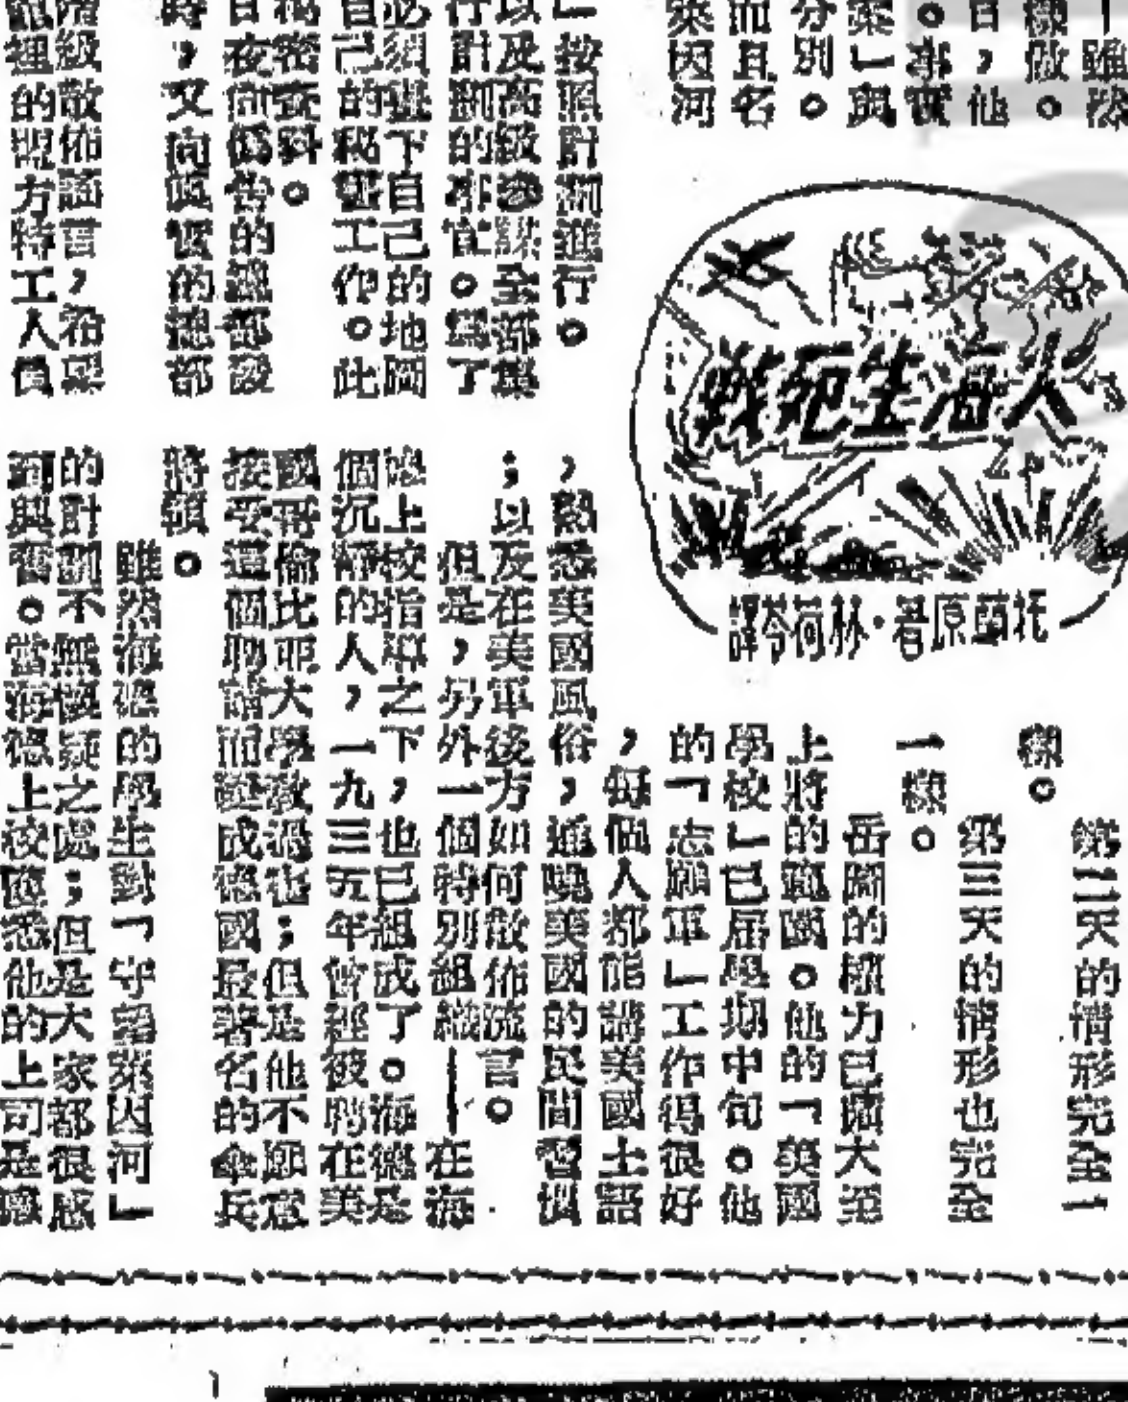 雖然
樣做。
日，他
。事實
案」與
分別。
而且名
萊因河
人海生死戰
原著·林荷苓譯
」按照計劃進行。
以及高級參謀全部集
行計劃的事宜。為了
必須 下自己的地圖
自己的秘密工作。此
機密資料。
日夜向 的總部發
時，又向真實的總部
階級散佈謠言，沿
裡的盟方特工人員
第二天的情形完全一
樣。
第三天的情形也完全
一樣。
岳圖的權力已擴大至
上將的範圍。他的「美國
學校」已屆學期中旬。他
的「志願軍」工作得很好
，每個人都能講美國土語
，熟悉美國風俗，通曉美國的民間習慣
；以及在美軍後方如何散佈流言。
但是，另外一個特別組織——在海
德上校指導之下，也已組成了。海德是
個沉靜的人，一九三五年曾經被聘在美
國哥倫比亞大學教過 ；但是他不願意
接受這個聘請而變成德國最著名的傘兵
將領。
雖然海德的學生對「守望萊因河」
的計劃不無懷疑之處；但是大家都很感
興奮。當海德上校 悉他的上司是